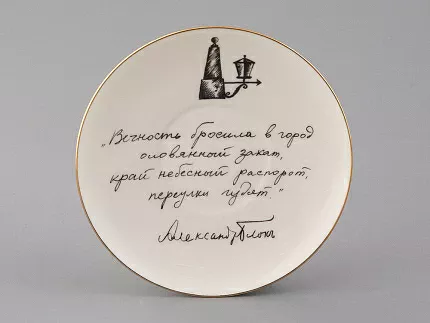 „Вечность бросила в город
оловянный закат,
край небесный распорот,
переулки гудят."
Александръ Блокъ